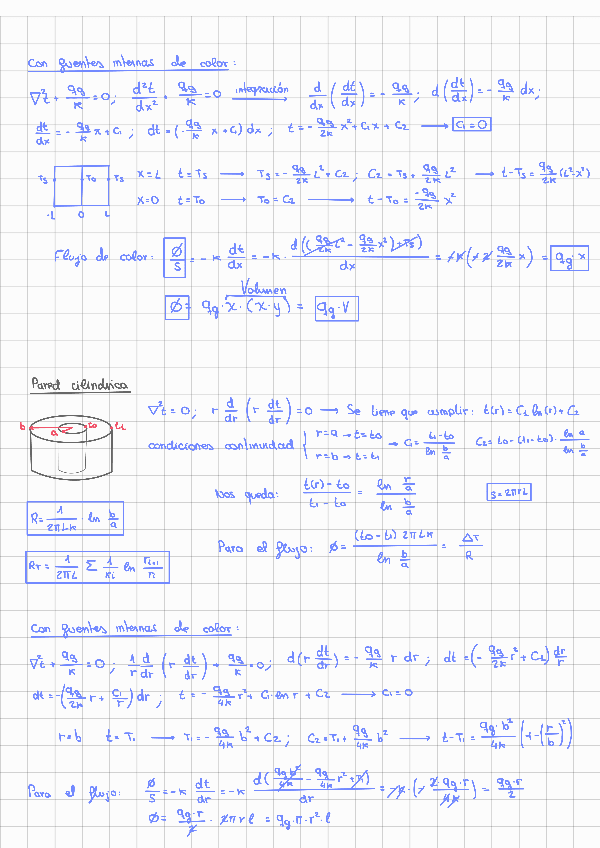 Con fuentes internas de calor:
∇²t + q_g/κ = 0; d²t/dx² + q_g/κ = 0 integración → d/dx (dt/dx) = - q_g/κ; d(dt/dx) = - q_g/κ dx;
dt/dx = - q_g/κ x + C₁; dt = (- q_g/κ x + C₁) dx; t = - q_g/2κ x² + C₁x + C₂ → C₁ = 0
Ts To Ts x=L t=Ts → Ts = - q_g/2κ L² + C₂; C₂ = Ts + q_g/2κ L² → t-Ts = q_g/2κ (L²-x²)
-L 0 L x=0 t=To → To = C₂ → t-To = -q_g/2κ x²
Flujo de calor: Ø/S = -κ dt/dx = -κ · d((q_g/2κ L² - q_g/2κ x²)+Ts)/dx = -κ(-2 q_g/2κ x) = q_g · x
Volumen
Ø = q_g · x · (x·y) = q_g · V
Pared cilíndrica
∇²t = 0; r d/dr (r dt/dr) = 0 → Se tiene que cumplir: t(r) = C₁ ln(r) + C₂
b a to t₁
condiciones continuidad { r=a → t=to r=b → t=t₁ → C₁ = t₁-to/ln b/a C₂ = to-(t₁-to) · ln a/ln b/a
Nos queda: t(r)-to/t₁-to = ln r/a/ln b/a S=2πrL
R = 1/2πLκ · ln b/a
Para el flujo: Ø = (to-t₁) 2πLκ/ln b/a = ΔT/R
R_T = 1/2πL Σ 1/κi ln ri+1/ri
Con fuentes internas de calor:
∇²t + q_g/κ = 0; 1/r d/dr (r dt/dr) + q_g/κ = 0; d(r dt/dr) = - q_g/κ r dr; dt = (- q_g/2κ r² + C₁) dr/r
dt = -(q_g/2κ r + C₁/r) dr; t = - q_g/4κ r² + C₁·ln r + C₂ → C₁ = 0
r=b t=T₁ → T₁ = - q_g/4κ b² + C₂; C₂ = T₁ + q_g/4κ b² → t-T₁ = q_g·b²/4κ (1-(r/b)²)
Para el flujo: Ø/S = -κ dt/dr = -κ d(q_g b²/4κ - q_g/4κ r² + T₁)/dr = -κ·(-2·q_g·r/4κ) = q_g·r/2
Ø = q_g·r/2 · 2πrl = q_g·π·r²·l